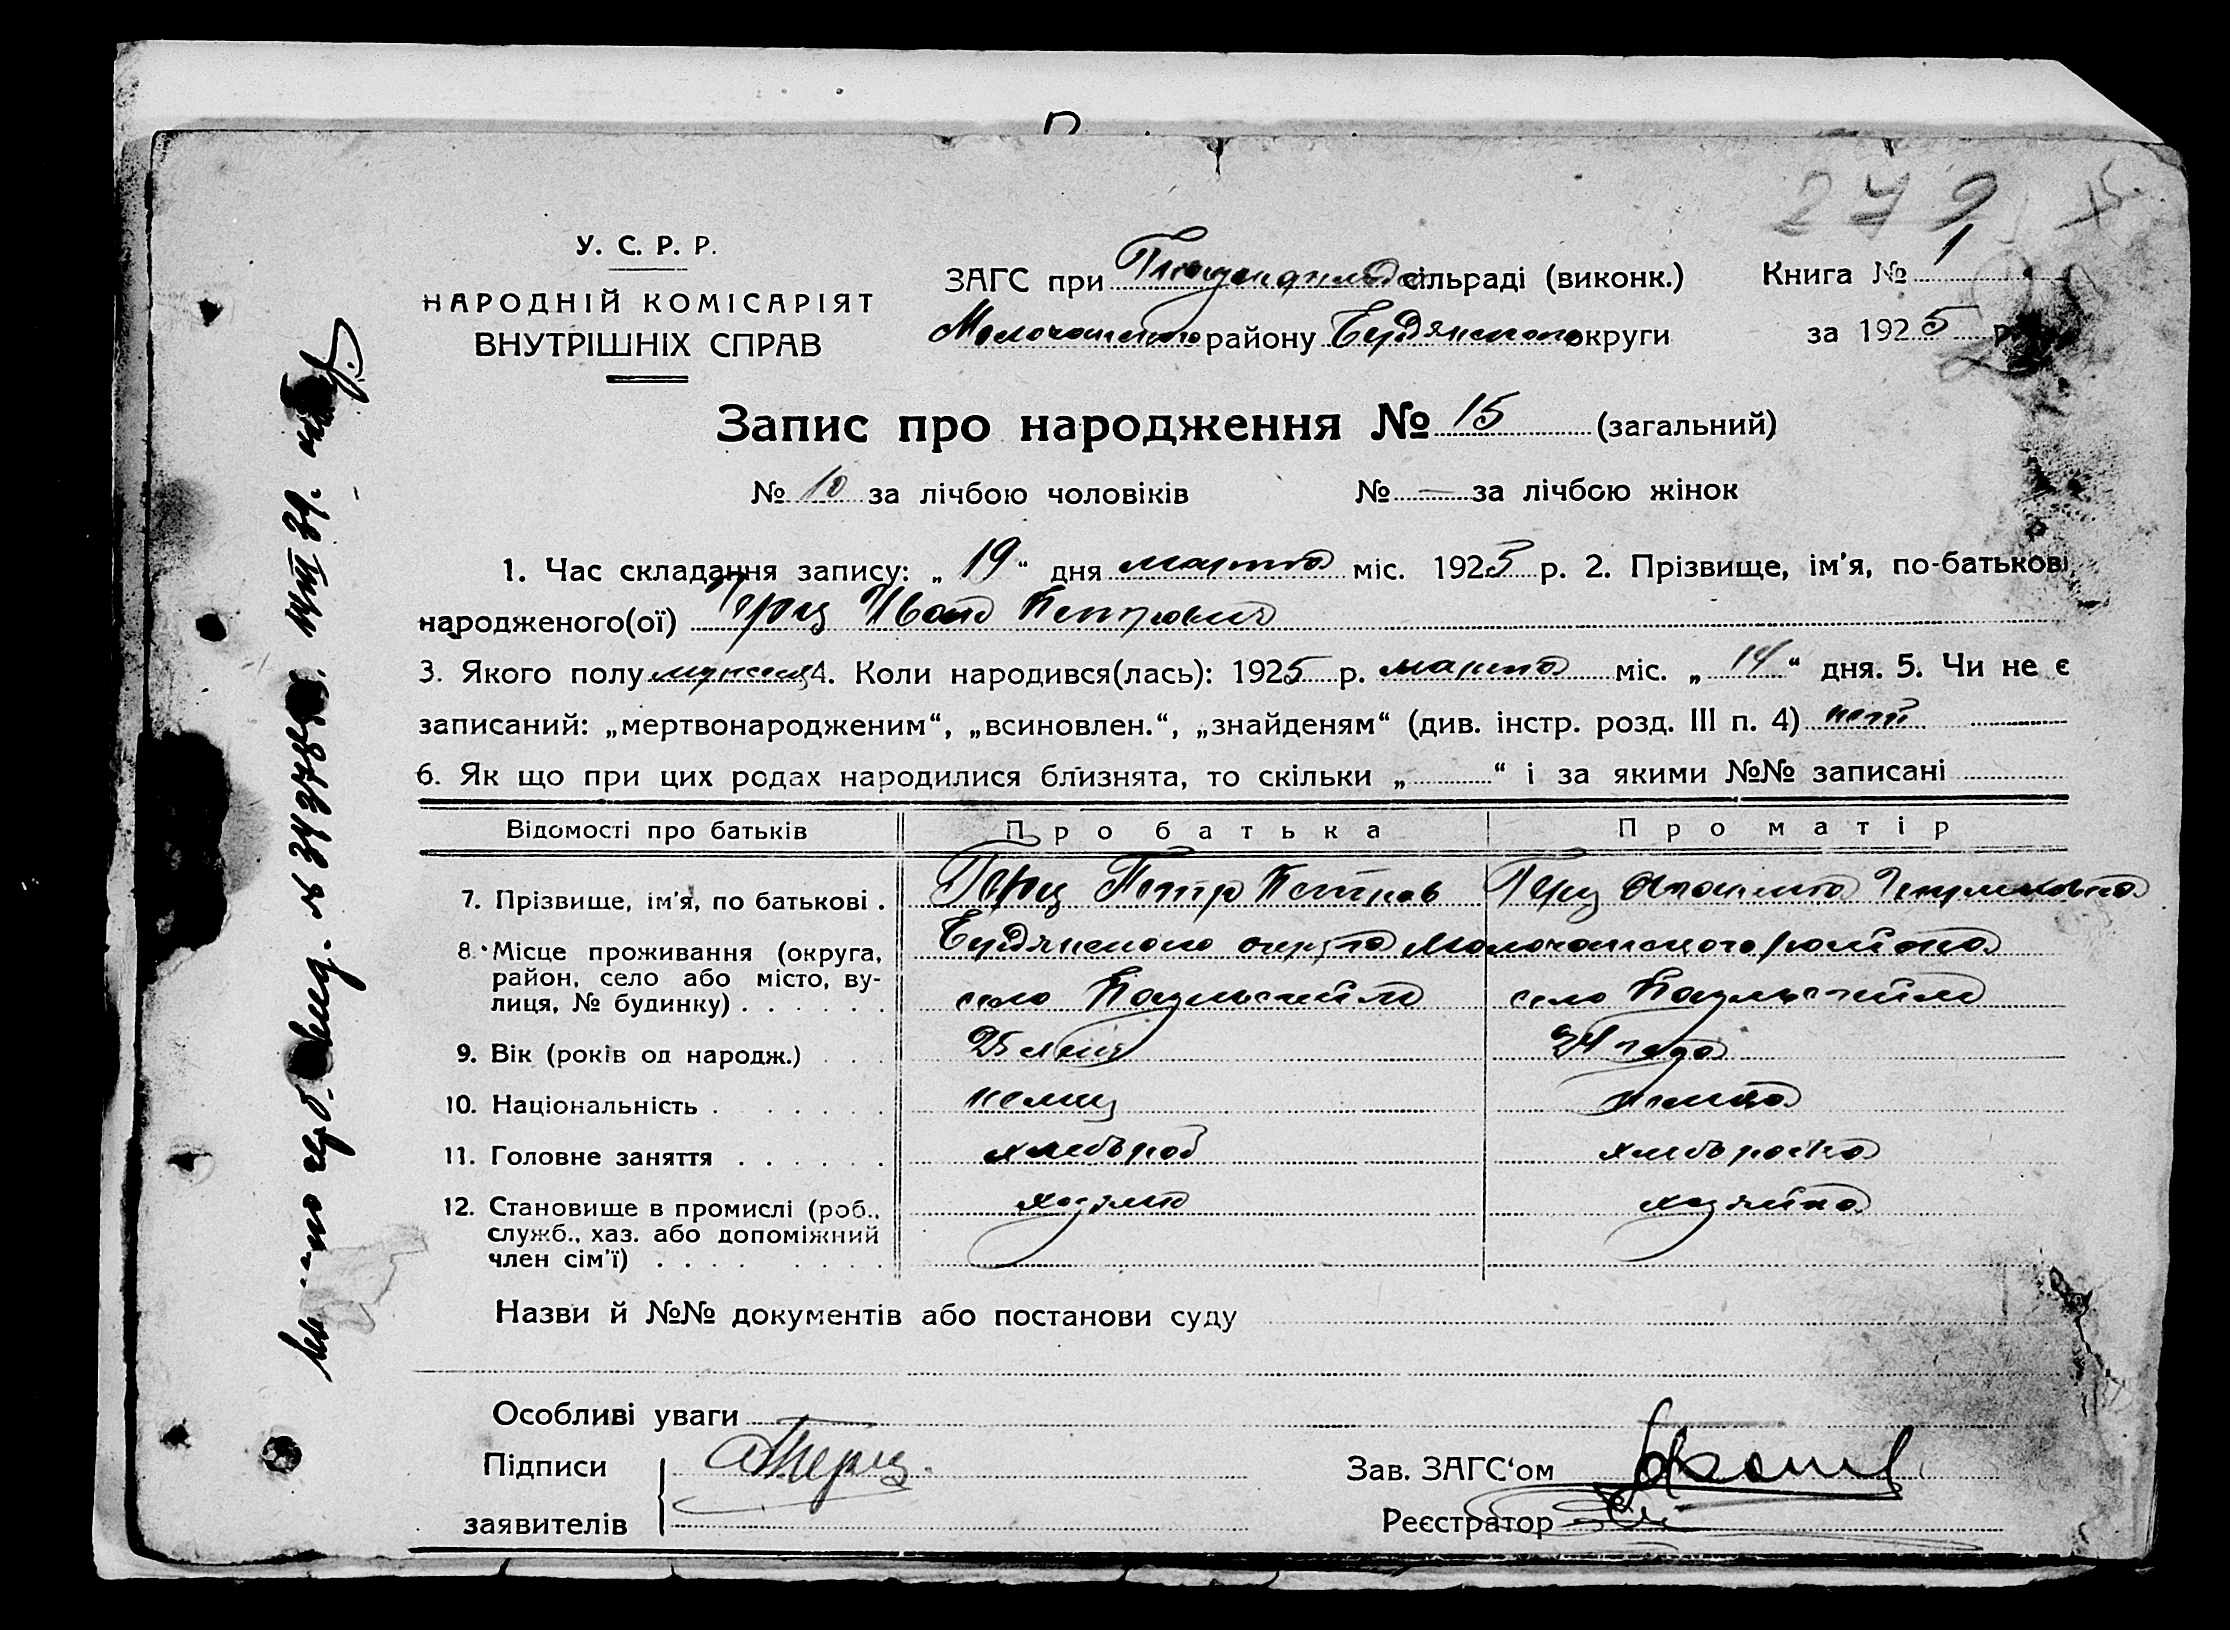 279
У. С. Р. Р.
НАРОДНІЙ КОМІСАРІЯТ
ВНУТРІШНІХ СПРАВ
ЗАГС при сільраді (виконк.) Книга № 1
Молочанского району Бердянского округи за 1925 р.
Запис про народження № 15 (загальний)
№ 10 за лічбою чоловіків № — за лічбою жінок
1. Час складання запису: „19“ дня марта міс. 1925 р. 2. Прізвище, ім'я, по-батькові
народженого(ої) Герц Иван Петрович
3. Якого полу 4. Коли народився(лась): 1925 р. марта міс. „14“ дня. 5. Чи не є
записаний: „мертвонародженим“, „всиновлен.“, „знайденям“ (див. інстр. розд. III п. 4) нет
6. Як що при цих родах народилися близнята, то скільки „ “ і за якими №№ записані
Відомості про батьків Про батька Про матір
7. Прізвище, ім'я, по батькові . Герц Петр Петров Герц
8. Місце проживання (округа, Бердянского округа Молочанского района
район, село або місто, ву-
лиця, № будинку) . . . . . . село Паульсгейм село Паульсгейм
9. Вік (років од народж.) . . . 25 лет 24 года
10. Національність . . . . . . немец немка
11. Головне заняття . . . . . . хлебороб
12. Становище в промислі (роб., хозяин хозяйка
служб., хаз. або допоміжний
член сім'ї) . . . . . . . .
Назви й №№ документів або постанови суду
Особливі уваги
Підписи Герц.
заявителів
Зав. ЗАГС‘ом
Реєстратор